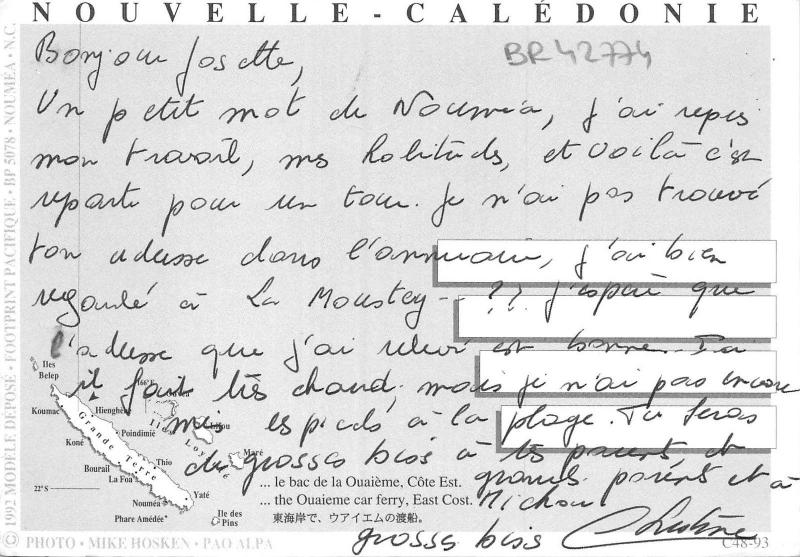 NOUVELLE-CALÉDONIE
BR 42774
Bonjour Josette,
Un petit mot de Nouméa, j'ai repris
mon travail, mes habitudes, et voilà c'est
reparti pour un tour. Je n'ai pas trouvé
ton adresse dans l'annuaire, j'ai bien
regardé à La Moustey - ?? J'espère que
l'adresse que j'ai relevé est bonne. Ici
il fait très chaud, mais je n'ai pas encore
mis les pieds à la plage. Tu feras
de grosses bises à tes parents et
grands parents et à
Michou
grosses bises Christine
Iles Belep
Koumac
Hienghène
166°E
Ouvéa
Iles Loyauté
Lifou
Poindimié
Koné
Grande Terre
Maré
Bourail
Thio
La Foa
22°S
Nouméa
Yaté
Phare Amédée
Ile des Pins
... le bac de la Ouaième, Côte Est.
... the Ouaieme car ferry, East Cost.
東海岸で、ウアイエムの渡船。
© 1992 MODÈLE DÉPOSÉ • FOOTPRINT PACIFIQUE • BP 5078 • NOUMÉA • N.C.
PHOTO • MIKE HOSKEN • PAO ALPA
C48-93